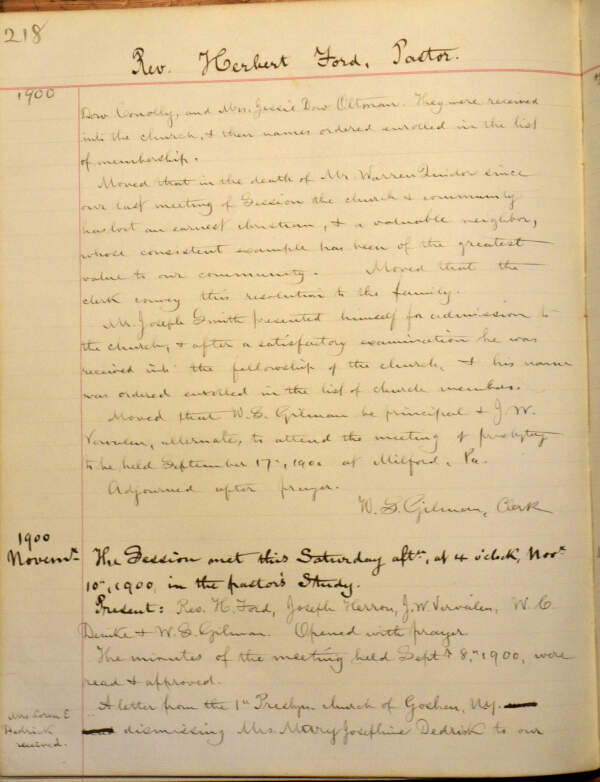 218
Rev. Herbert Ford, Pastor.
1900
Dow Conolly, and Mrs. Jessie Dow Oltman. They were received
into the church, & their names ordered enrolled in the list
of membership.
Moved that in the death of Mr. Warren Quidor since
our last meeting of Session the church & community
has lost an earnest christian, & a valuable neighbor,
whose consistent example has been of the greatest
value to our community. Moved that the
clerk convey this resolution to the family.
Mr. Joseph Smith presented himself for admission to
the church, & after a satisfactory examination he was
received into the fellowship of the church, & his name
was ordered enrolled in the list of church members.
Moved that W. S. Gilman be principal & J. W.
Vervalen, alternate, to attend the meeting of presbytery
to be held September 17th, 1900 at Milford, Pa.
Adjourned after prayer.
W. S. Gilman, Clerk
1900
Novemr.
The Session met this Saturday aftn, at 4 o'clock, Novr
10th, 1900, in the pastor's Study.
Present: Rev. H. Ford, Joseph Herron, J. W. Vervalen, W. C.
& W. S. Gilman. Opened with prayer.
The minutes of the meeting held Septr 8th, 1900, were
read & approved.
A letter from the 1st Presbyn church of Goshen, N.Y.
dismissing Mrs. Mary Josephine Dedrick to our
Mrs. E.
received.